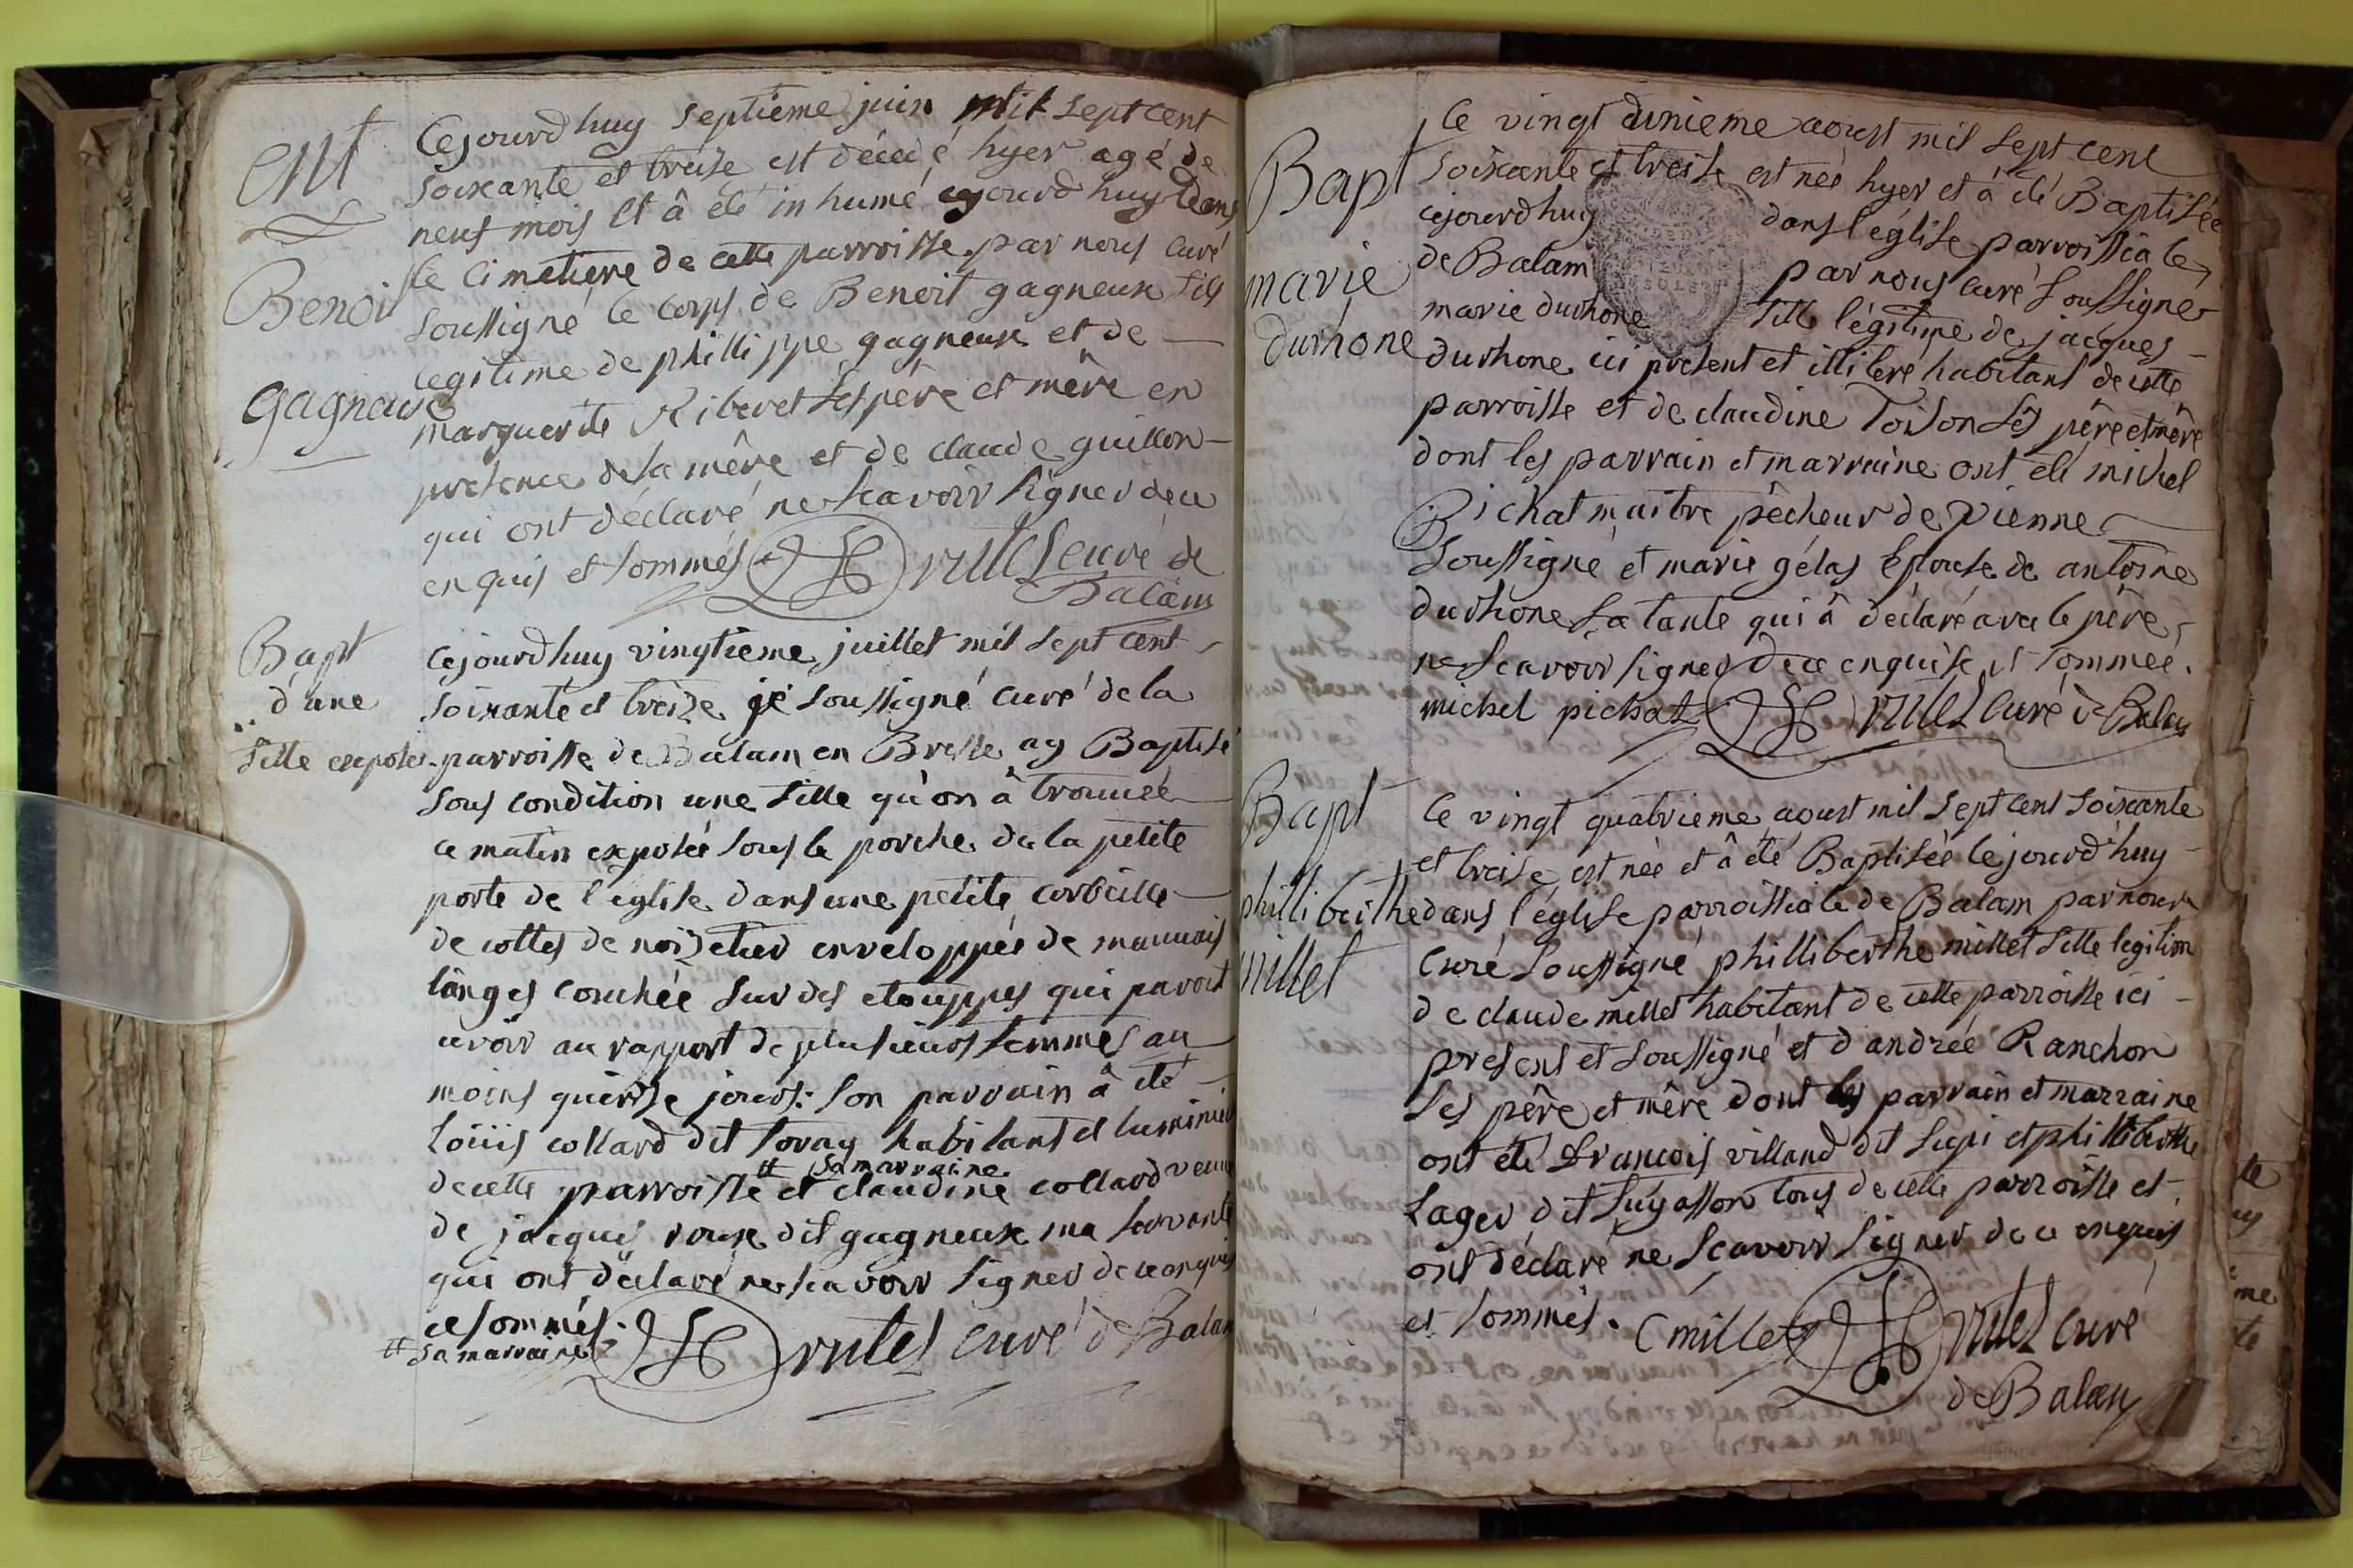 Ent
Benoit
gagneux
Cejourdhuy septieme juin mil sept cent
soixante et treise est décedé hyer agé de
neuf mois et à été inhumé cejourdhuy dans
le cimetiere de cette parroisse par nous curé
soussigné le corps de Benoit gagneux fils
legitime de phillippe gagneux et de
marguerite Riberet ses père et mère en
presence de la mère et de claude guillon
qui ont déclaré ne scavoir signer de ce
enquis et sommés Drutel curé de
Balam
Bapt
d'une
fille exposée
cejourdhuy vingtieme juillet mil sept cent
soixante et treize je soussigné curé de la
parroisse de Balam en Bresse ay Baptisé
sous condition une fille qu'on à trouvée
ce matin exposée sous le porche de la petite
porte de l'eglise dans une petite corbeille
de cottes de noizetier enveloppée de mauvais
langes couchée sur des etouppes qui paroit
avoir au rapport de plusieurs femmes au
moins quinze jours. son parrain à été
Loüis collard dit loray habitant et luminier
de cette parroisse # sa marraine et claudine collard veuve
de jacques roux dit gagneux ma servante
qui ont déclaré ne scavoir signer de ce enquis
et sommés. Drutel curé de Balam
# sa marraine
Bapt
marie
durhone
Ce vingt unieme aoust mil sept cent
soixante et treise est née hyer et à été Baptisée
cejourdhuy dans l'église parroissiale
de Balam par nous curé soussigné
marie durhone fille légitime de jacques
durhone ici present et illiteré habitant de cette
parroisse et de claudine Toison ses père et mère
dont les parrain et marraine ont été michel
Pichat maitre pêcheur de vienne
soussigné et marie gélas Epouse de antoine
durhone sa tante qui à déclaré avec le père
ne scavoir signer de ce enquise et sommée.
michel pichat Drutel curé de Balam
Bapt
philliberthe
millet
Ce vingt quatrieme aoust mil sept cent soixante
et treise est née et à été Baptisée cejourd'huy
dans l'église parroissiale de Balam par nous
Curé soussigné philliberthe millet fille legitime
de claude millet habitant de cette parroisse ici
present et soussigné et d'andrée Ranchon
ses père et mère dont les parrain et marraine
ont été François villand dit supi et philliberthe
Lager dit suyasson tous de cette parroisse et
ont déclaré ne scavoir signer de ce enquis
et sommés. C millet Drutel curé
de Balam